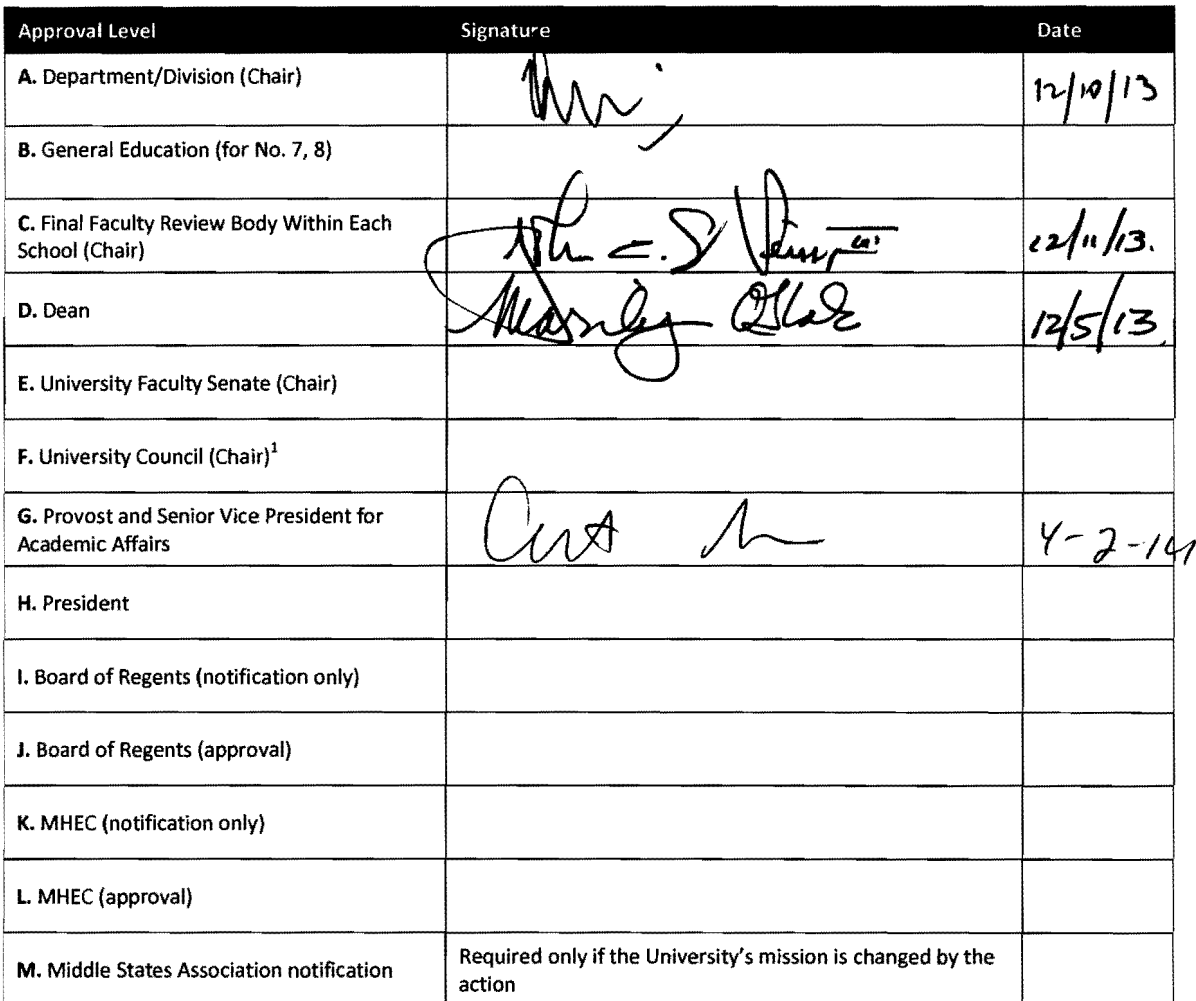 Approval Level Signature Date
A. Department/Division (Chair) 12/10/13
B. General Education (for No. 7, 8)
C. Final Faculty Review Body Within Each
School (Chair) 12/11/13.
D. Dean 12/5/13.
E. University Faculty Senate (Chair)
F. University Council (Chair)¹
G. Provost and Senior Vice President for
Academic Affairs 4-2-14
H. President
I. Board of Regents (notification only)
J. Board of Regents (approval)
K. MHEC (notification only)
L. MHEC (approval)
M. Middle States Association notification
Required only if the University's mission is changed by the
action